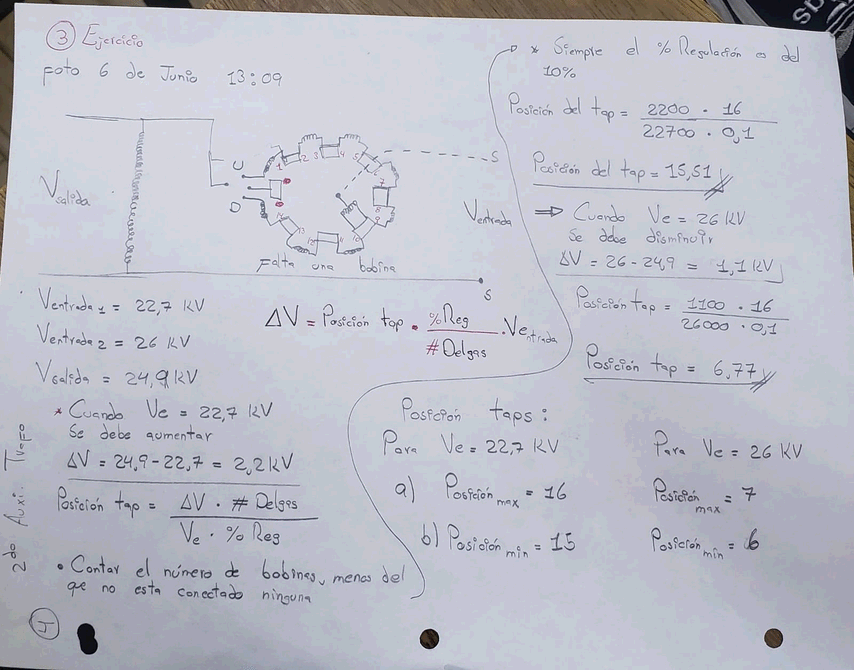 3 Ejercicio
foto 6 de Junio 13:09
Vsalida
U
D
1 2 3 4 5 6 7
S
Ventrada
Falta una bobina
S
Ventrada1 = 22,7 KV
Ventrada2 = 26 KV
Vsalida = 24,9 KV
ΔV = Posición tap · %Reg / #Delgas · Ventrada
* Cuando Ve = 22,7 KV
Se debe aumentar
ΔV = 24,9 - 22,7 = 2,2 KV
Posición tap = ΔV · # Delgas / Ve · % Reg
• Contar el número de bobinas, menos del
que no esta conectado ninguna
2do Auxi. Trafo
J
* Siempre el % Regulación es del
10%
Posición del tap = 2200 · 16 / 22700 · 0,1
Posición del tap = 15,51
⇒ Cuando Ve = 26 KV
Se debe disminuir
ΔV = 26 - 24,9 = 1,1 KV
Posición tap = 1100 · 16 / 26000 · 0,1
Posición tap = 6,77
Posición taps:
Para Ve = 22,7 KV Para Ve = 26 KV
a) Posición max = 16 Posición max = 7
b) Posición min = 15 Posición min = 6